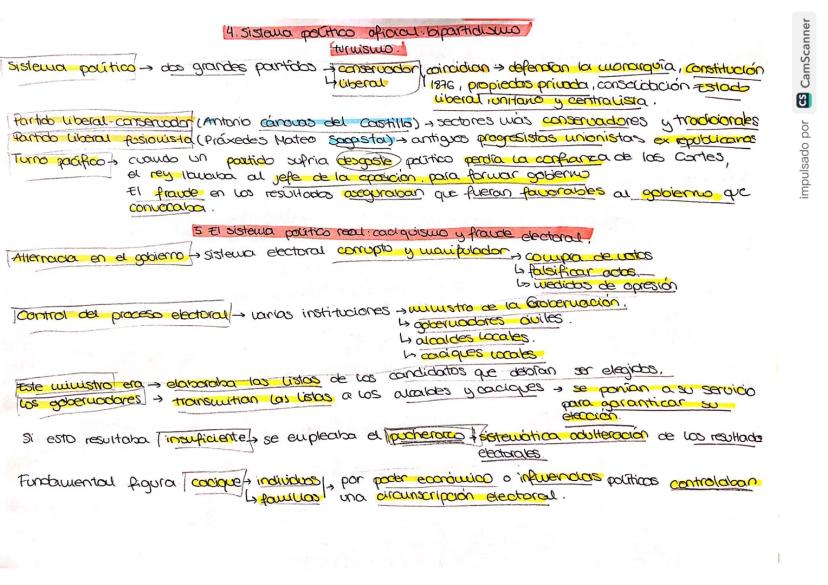 4. Sistema político oficial: bipartidismo
turnismo.
Sistema político → dos grandes partidos → conservador, coincidian → defendían la monarquía, constitución
↳ liberal 1876, propiedad privada, consolidación Estado
liberal, unitario y centralista.
Partido liberal-conservador (Antonio cánovas del Castillo) → sectores más conservadores y tradicionales
Partido liberal fusionista (Práxedes Mateo Sagasta) → antiguos progresistas unionistas ex republicanos
Turno pacífico → cuando un partido sufría desgaste político perdía la confianza de las Cortes,
el rey llamaba al jefe de la oposición para formar gobierno
El fraude en los resultados aseguraban que fueran favorables al gobierno que
convocaba.
5 El sistema político real: caciquismo y fraude electoral.
Alternacia en el gobierno → sistema electoral corrupto y manipulador → compra de votos
↳ falsificar actas
↳ medidas de opresión
Control del proceso electoral → varias instituciones → ministro de la Gobernación.
↳ gobernadores civiles.
↳ alcaldes locales.
↳ caciques locales
Este ministro era → elaboraba las listas de los candidatos que debían ser elegidos.
Los gobernadores → transmitían las listas a los alcaldes y caciques → se ponían a su servicio
para garanticar su
elección.
Si esto resultaba insuficiente → se empleaba el pucherazo → sistemática adulteración de los resultado
electorales
Fundamental figura cacique → individuos → por poder económico o influencias políticas controlaban
↳ familias una circunscripción electoral.
impulsado por CS CamScanner